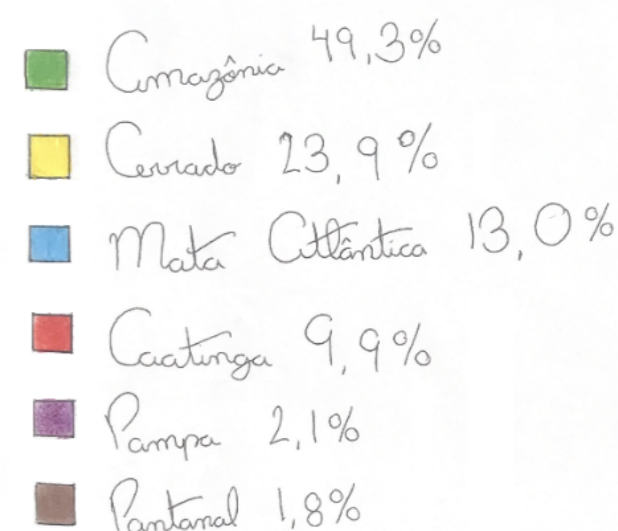 Amazônia 49,3%
Cerrado 23,9%
Mata Atlântica 13,0%
Caatinga 9,9%
Pampa 2,1%
Pantanal 1,8%